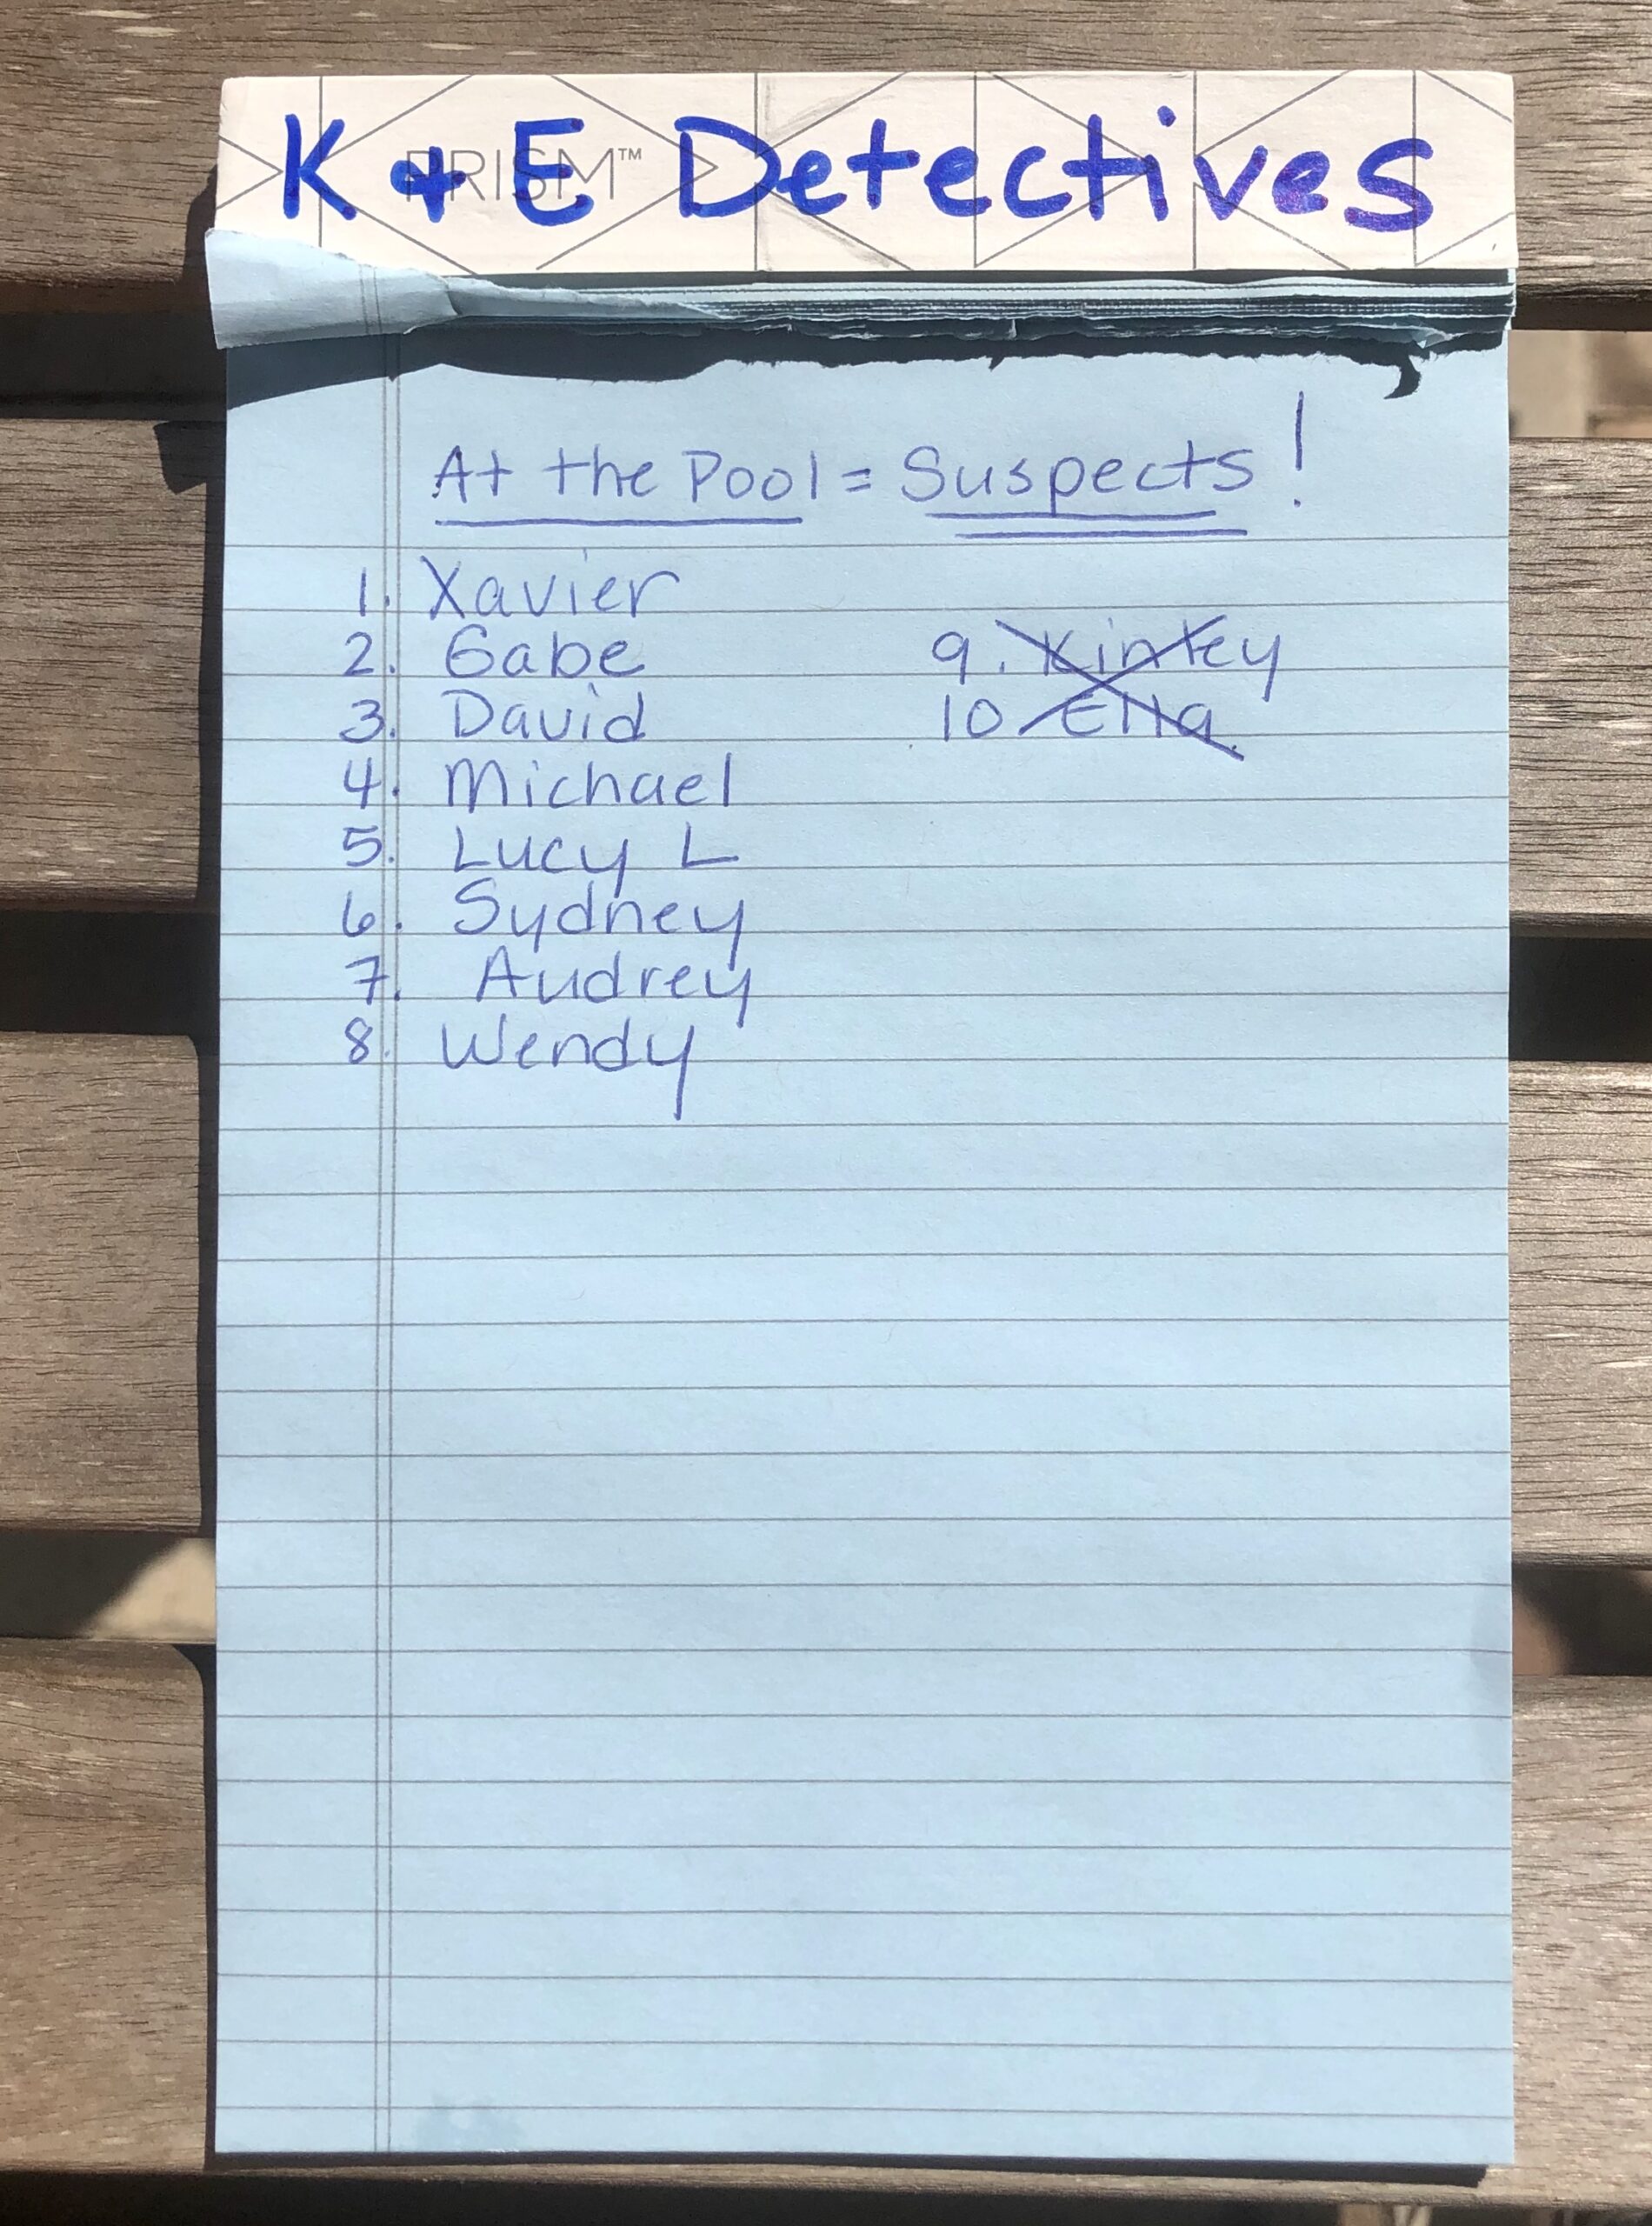 K + E Detectives
PRISM™
At the Pool = Suspects!
1. Xavier
2. Gabe
3. David
4. Michael
5. Lucy L
6. Sydney
7. Audrey
8. Wendy
9. Kinley
10 Ella